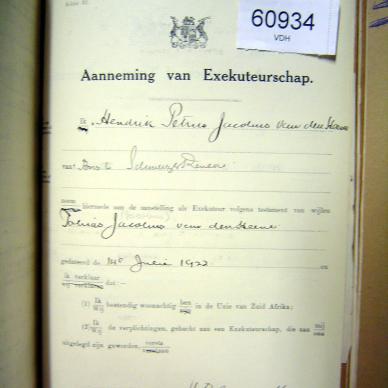 60934
VDH
Aanneming van Exekuteurschap.
Ik Hendrik Petrus Jacobus van den Heever
van Schweizer Reneke
neem hiermede aan de aanstelling als Exekuteur volgens testament van wijlen
Tobias Jacobus van den Heever
gedateerd de 14e Junie 1922 en
ik verklaar
wij verklaren dat: —
(1) Ik Wij bestendig woonachtig ben zijn in de Unie van Zuid Afrika;
(2) Ik Wij de verplichtingen, gehecht aan een Exekuteurschap, die aan mij ons
uitgelegd zijn geworden, versta verstaan